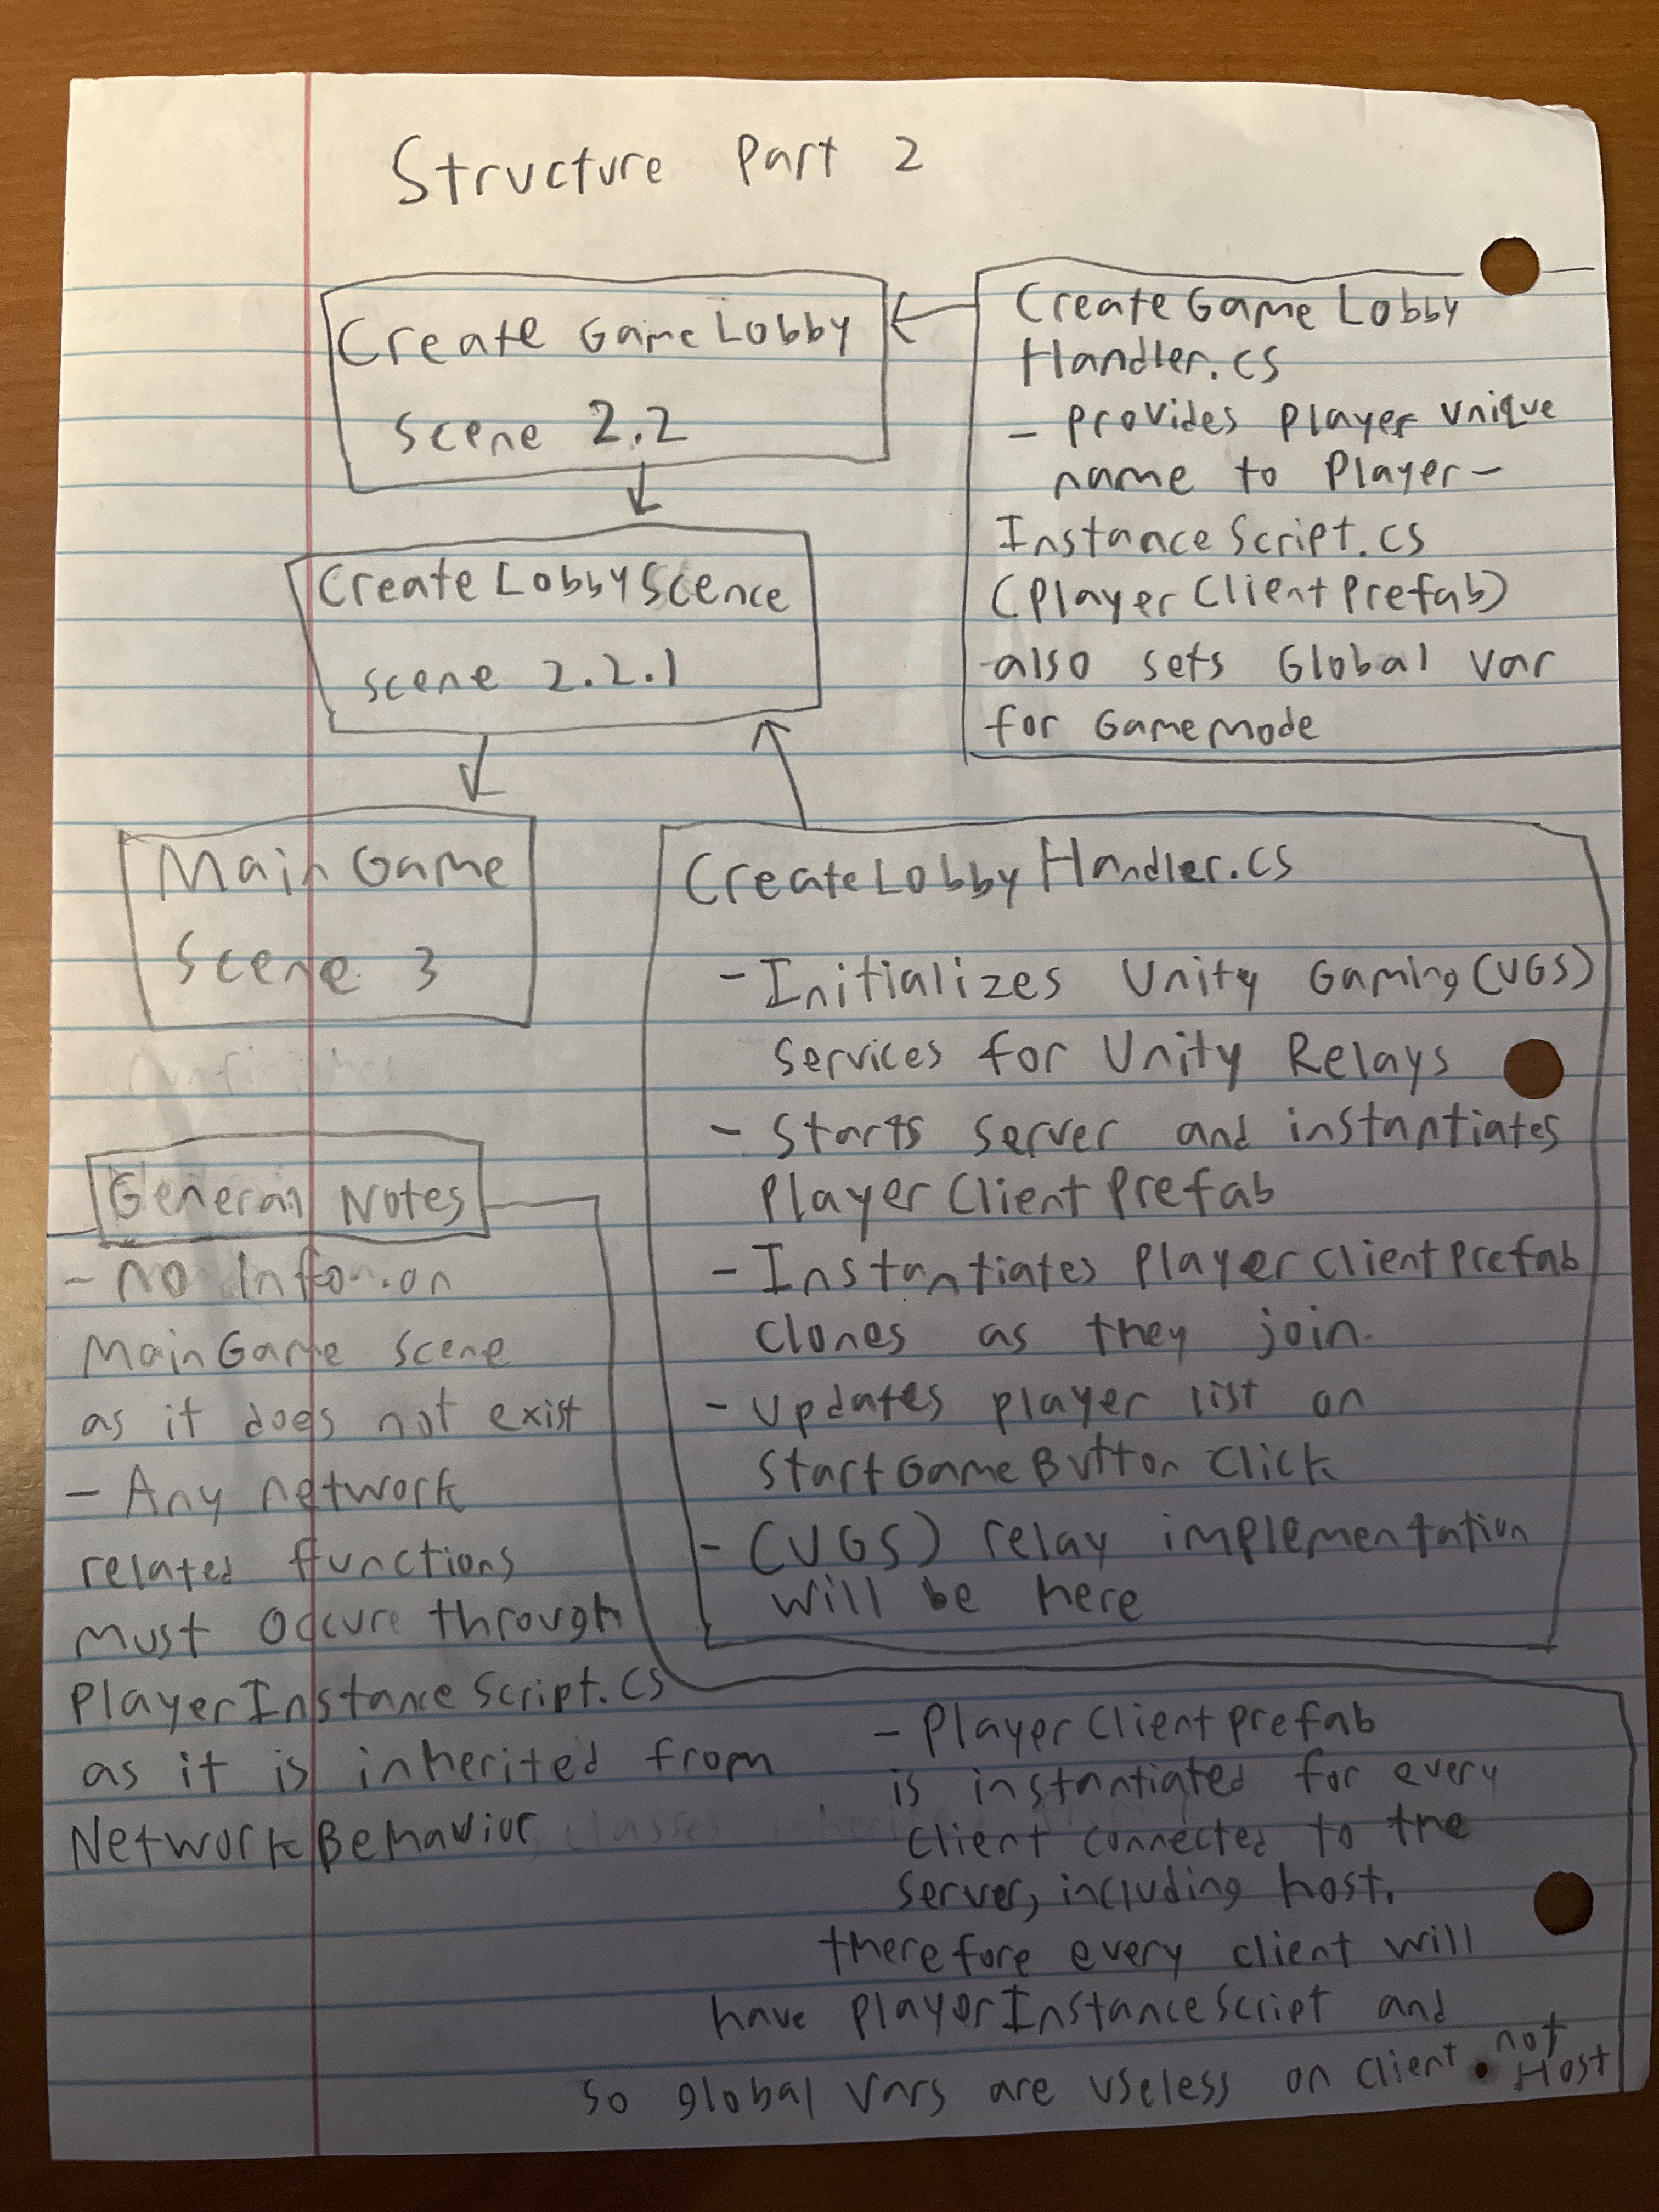 Structure Part 2
Create Game Lobby
Scene 2.2
CreateLobbyScence
scene 2.2.1
Main Game
Scene 3
Create Game Lobby
Handler.cs
- Provides Player unique
name to Player-
InstanceScript.cs
(PlayerClientPrefab)
-also sets Global var
for GameMode
CreateLobbyHandler.cs
- Initializes Unity Gaming (UGS)
Services for Unity Relays
- Starts server and instantiates
PlayerClientPrefab
- Instantiates PlayerClientPrefab
Clones as they join.
- Updates player list on
StartGameButton Click
- (UGS) relay implementation
will be here
General Notes
- No Info on
MainGame scene
as it does not exist
- Any network
related functions
must occure through
PlayerInstanceScript.cs
as it is inherited from
NetworkBehavior
- PlayerClientPrefab
is instantiated for every
client connected to the
server, including host.
therefore every client will
have PlayerInstanceScript and
so global vars are useless on client. not
Host